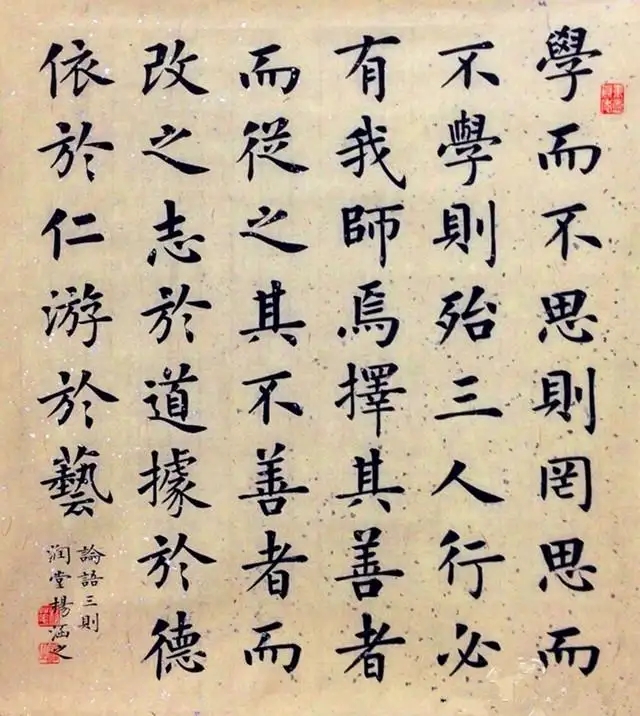 學而不思則罔思而
不學則殆三人行必
有我師焉擇其善者
而從之其不善者而
改之志於道據於德
依於仁游於藝
論語三則
润堂楊涵之